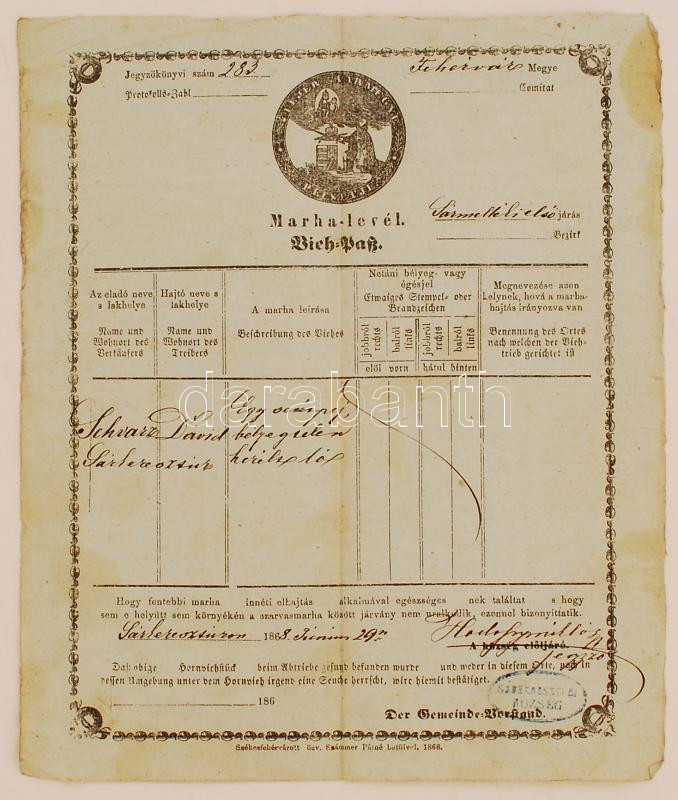 Jegyzőkönyvi szám 283
Fehérvár Megye
Protokolls-Zahl
Comitat
Marha-levél.
járás
Vieh-Paß.
Bezirk
Az eladó neve s lakhelye
Name und Wohnort des Verkäufers
Hajtó neve s lakhelye
Name und Wohnort des Treibers
A marha leirása
Beschreibung des Viehes
Netáni bélyeg- vagy égésjel
Etwaiges Stempel- oder Brandzeichen
jobbról rechts
balról links
jobbról rechts
balról links
elöl vorn
hátul hinten
Megnevezése azon helynek, hová a marha-hajtás irányozva van
Benennung des Ortes nach welchen der Vieh-trieb gerichtet ist
darabanth
Egy
Schvarz David bélyegtelen
herélt ló
Hogy fentebbi marha innéti elhajtás alkalmával egészséges nek találtat s hogy
sem e helyütt sem környékén a szarvasmarha között járvány nem uralkodik, ezennel bizonyittatik.
1868. Június 29n
A község elöljáró.
jegyző
Daß obige Hornviehstück beim Abtriebe gesund befunden wurde und weder in diesem Orte, noch in
dessen Umgebung unter dem Hornvieh irgend eine Seuche herrscht, wird hiemit bestätiget.
186
KÖZSÉG
Der Gemeinde-Vorstand.
Székesfehérvárott özv. Számmer Pálné betűivel. 1868.